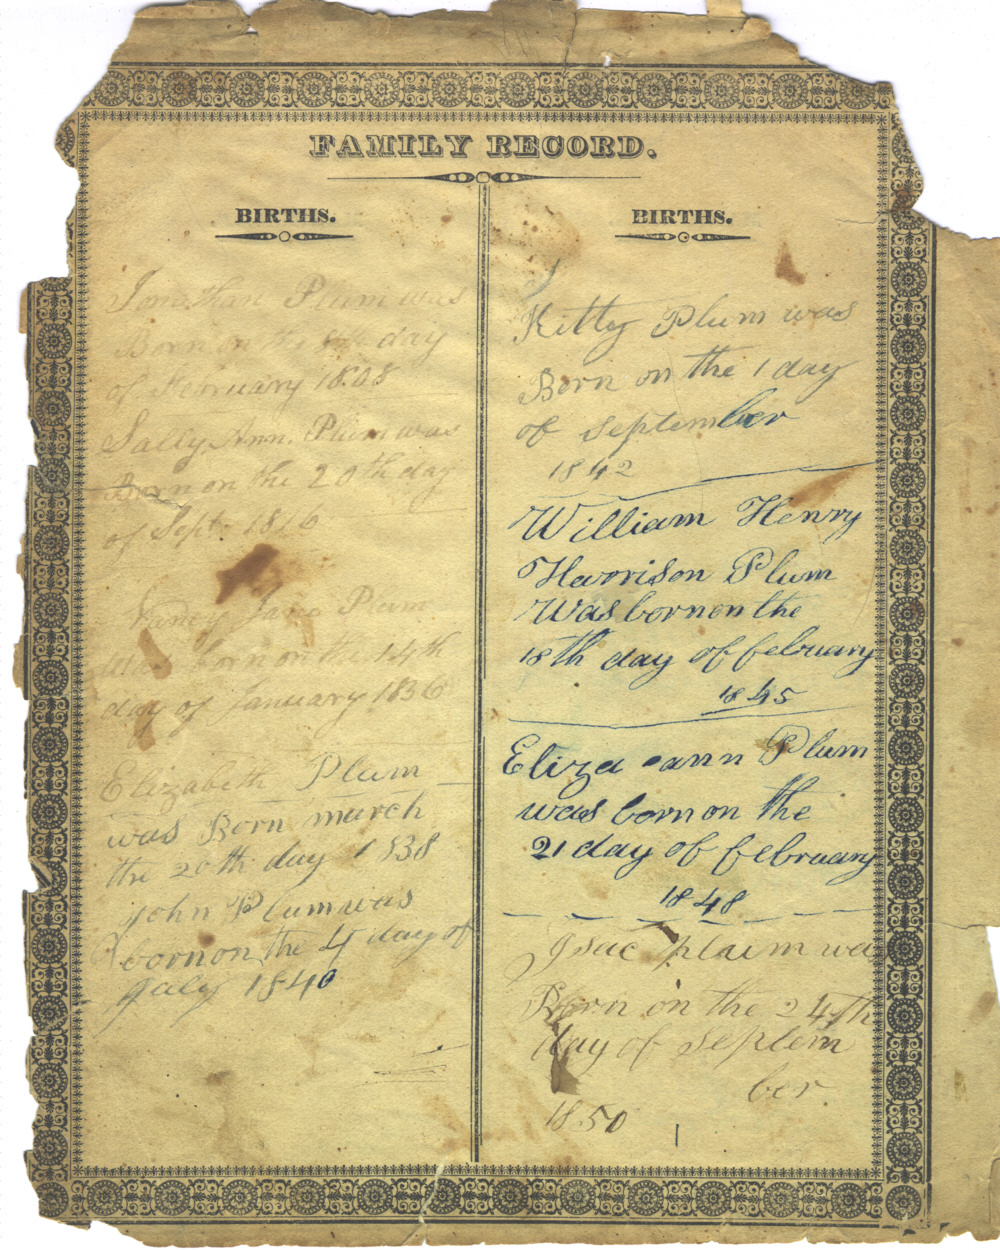 FAMILY RECORD.
BIRTHS.
Jonathan Plum was
Born on the day
of 1808
Sally Ann Plum was
Born on the 20th day
of Sept 1816
Jane Plum
was born on 14th
day of January 1836
Elizabeth Plum
was Born march
the 20th day 1838
John Plum was
born on the 4 day of
July 1840
BIRTHS.
Kitty Plum was
Born on the 1 day
of September
1842
William Henry
Harrison Plum
Was born on the
18th day of february
1845
Eliza ann Plum
was born on the
21 day of february
1848
Isac Plum was
Born on the 24th
day of Septem
ber
1850